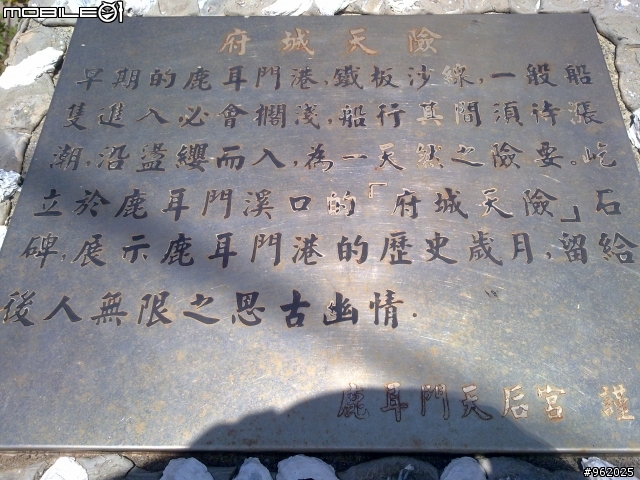 mobile01
府城天險
早期的鹿耳門港,鐵板沙線,一般船
隻進入必會擱淺,船行其間須待漲
潮,沿盪纓而入,為一天然之險要。屹
立於鹿耳門溪口的「府城天險」石
碑,展示鹿耳門港的歷史歲月,留給
後人無限之思古幽情.
鹿耳門天后宮 謹
#962025